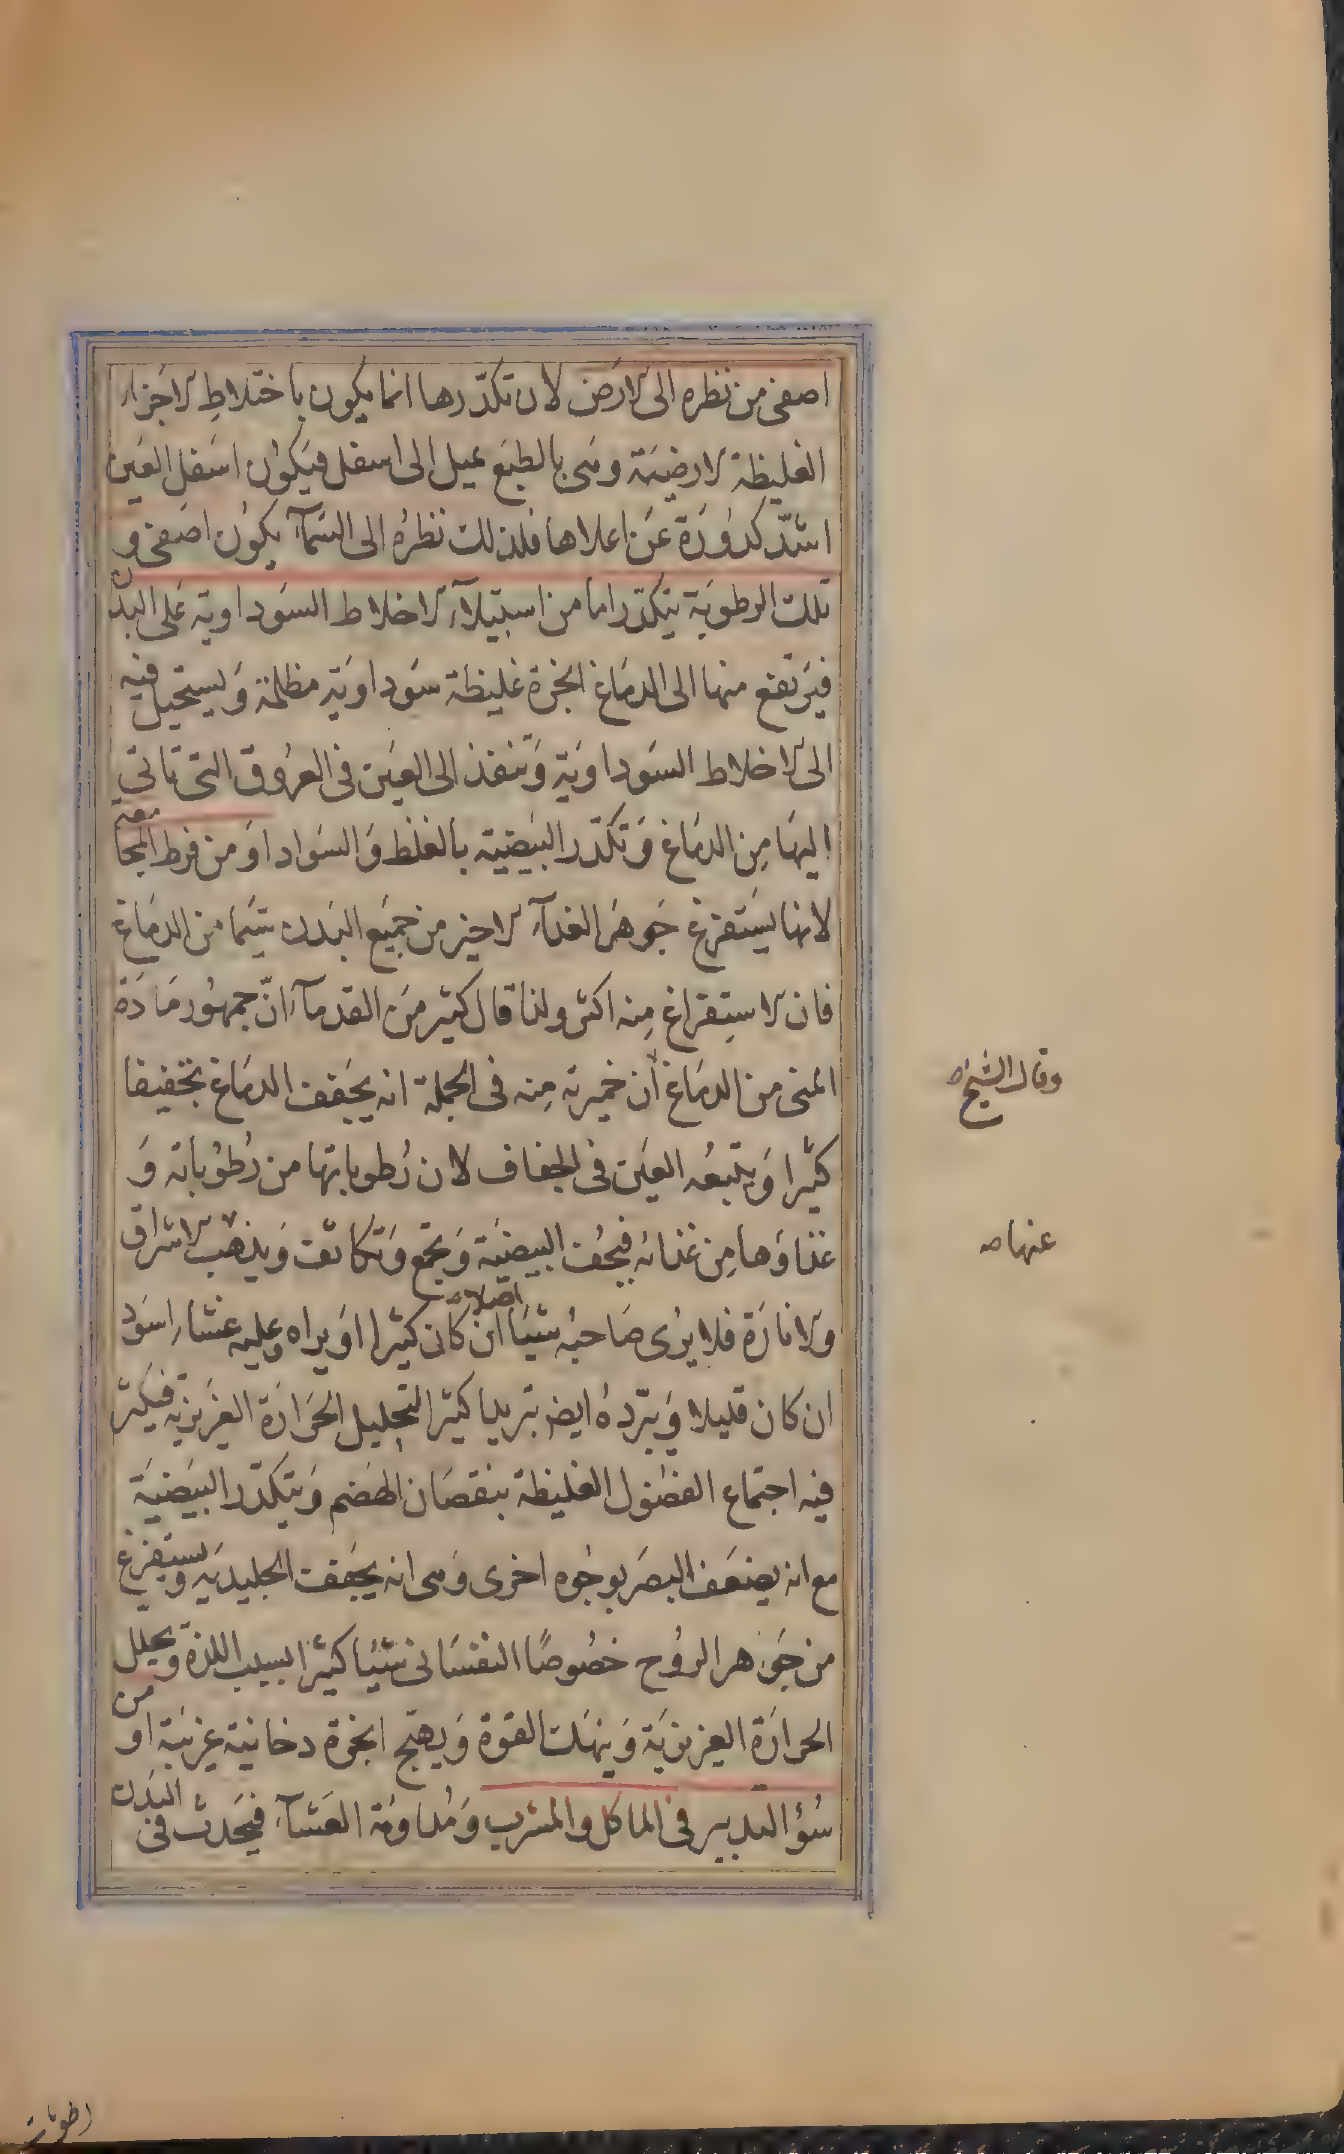 اصفى من نظره الى الارض لان تكدّرها انما يكون باختلاط الاجزاء
الغليظة الارضيّة وهى بالطبع يميل الى اسفل فيكون اسفل العين
اشدّ كدورة عن اعلاها فلذلك نظره الى السمآء يكون اصفى و
تلك الرطوبة يتكدّر اما من استيلآء الاخلاط السوداوية على البدن
فيرتفع منها الى الدماغ ابخرة غليظة سوداوية مظلمة ويستحيل فيه
الى الاخلاط السوداوية وتنفذ الى العين فى العروق التى تاتى
اليها من الدماغ وتكدّر البيضية بالغلظ والسواد او من فرط المجامعة
لانها يستفرغ جوهر الغذآء الاخير من جميع البدن سيّما من الدماغ
فان الاستفراغ منه اكثر ولذا قال كثير من القدمآء انّ جمهور مادة
المنى من الدماغ ان خميرته منه فى الجملة انه يجفف الدماغ تجفيفا
وقال الشيخ صح
كثيرا ويتبعه العين فى الجفاف لان رطوباتها من رطوباته و
غذاؤها من غذائه فيجف البيضيّة ويجمع وتكاثف ويذهب الاشراق
عنها صح
والانارة فلا يرى صاحبه شيئا اصلا ان كان كثيرا او يراه وعليه غشاء اسود
ان كان قليلا ويبرّده ايضا تبريدا كثيرا لتحليل الحرارة الغريزيّة فيكثر
فيه اجتماع الفضول الغليظة بنقصان الهضم ويتكدّر البيضيّة
مع انه يضعف البصر بوجوه اخرى وهى انه يجفف الجليديّة ويستفرغ
من جوهر الروح خصوصًا النفسانى شيئا كثيرا بسبب اللذة ويحلل
الحرارة الغريزيّة وينهك القوة ويهيّج ابخرة دخانية غريبة او من
سؤ التدبير فى الماكل والمشرب ومداومة العشآء فيحدث فى البدن
رطوبات